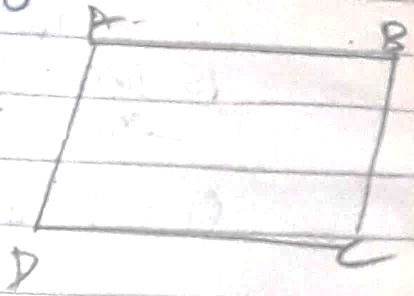 A B
D C